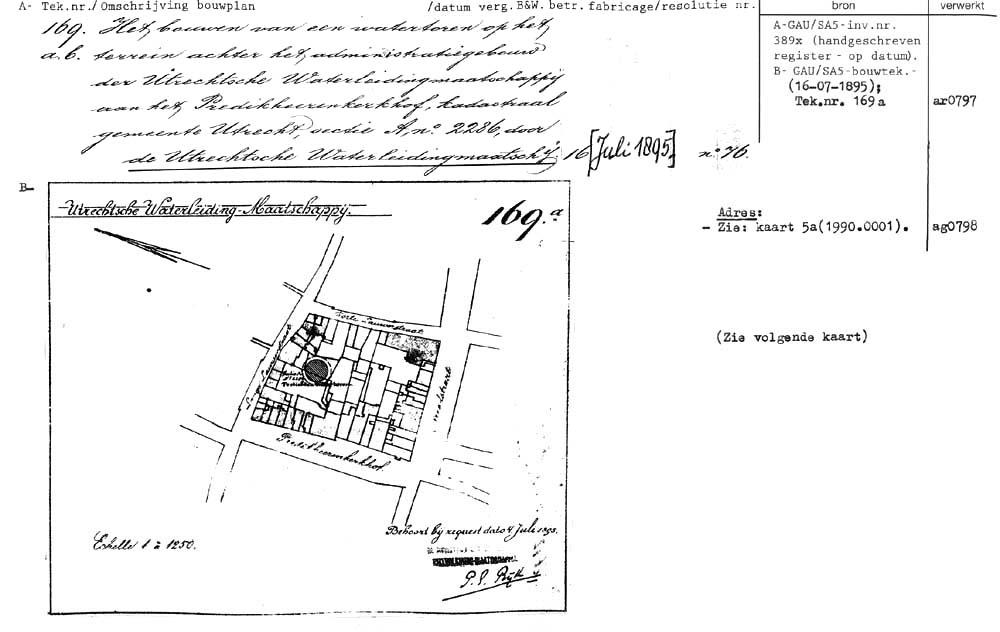 A- Tek.nr./ Omschrijving bouwplan /datum verg. B&W. betr. fabricage/resolutie nr. bron verwerkt
169. Het bouwen van een watertoren op het
a.b. terrein achter het administratiegebouw
der Utrechtsche Waterleidingmaatschappij
aan het Predikheerenkerkhof, kadastraal
gemeente Utrecht, sectie A, no. 2286, door
de Utrechtsche Waterleidingmaatschij. 16 [Juli 1895] no. 76.
A-GAU/SA5-inv.nr.
389x (handgeschreven
register - op datum).
B- GAU/SA5-bouwtek.-
(16-07-1895);
Tek.nr. 169a ar0797
Adres:
- Zie: kaart 5a(1990.0001). ag0798
(Zie volgende kaart)
B-
Utrechtsche Waterleiding-Maatschappij.
169.a
Korte Lauwerstraat
Predikheerenkerkhof.
Echelle 1 à 1250.
Behoort bij request dato 4 Juli 1895.